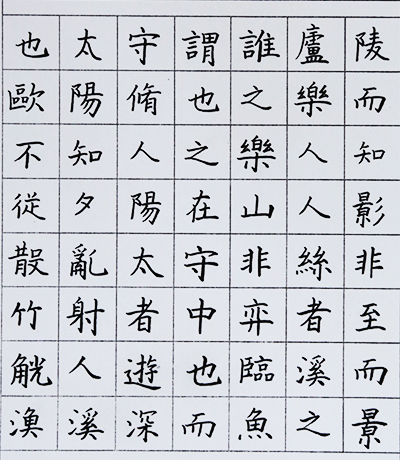 也太守謂誰廬陵
歐陽脩也之樂而
不知人之樂人知
從夕陽在山人影
散亂太守非絲非
竹射者中弈者至
觥人遊也臨溪而
漁溪深而魚之景